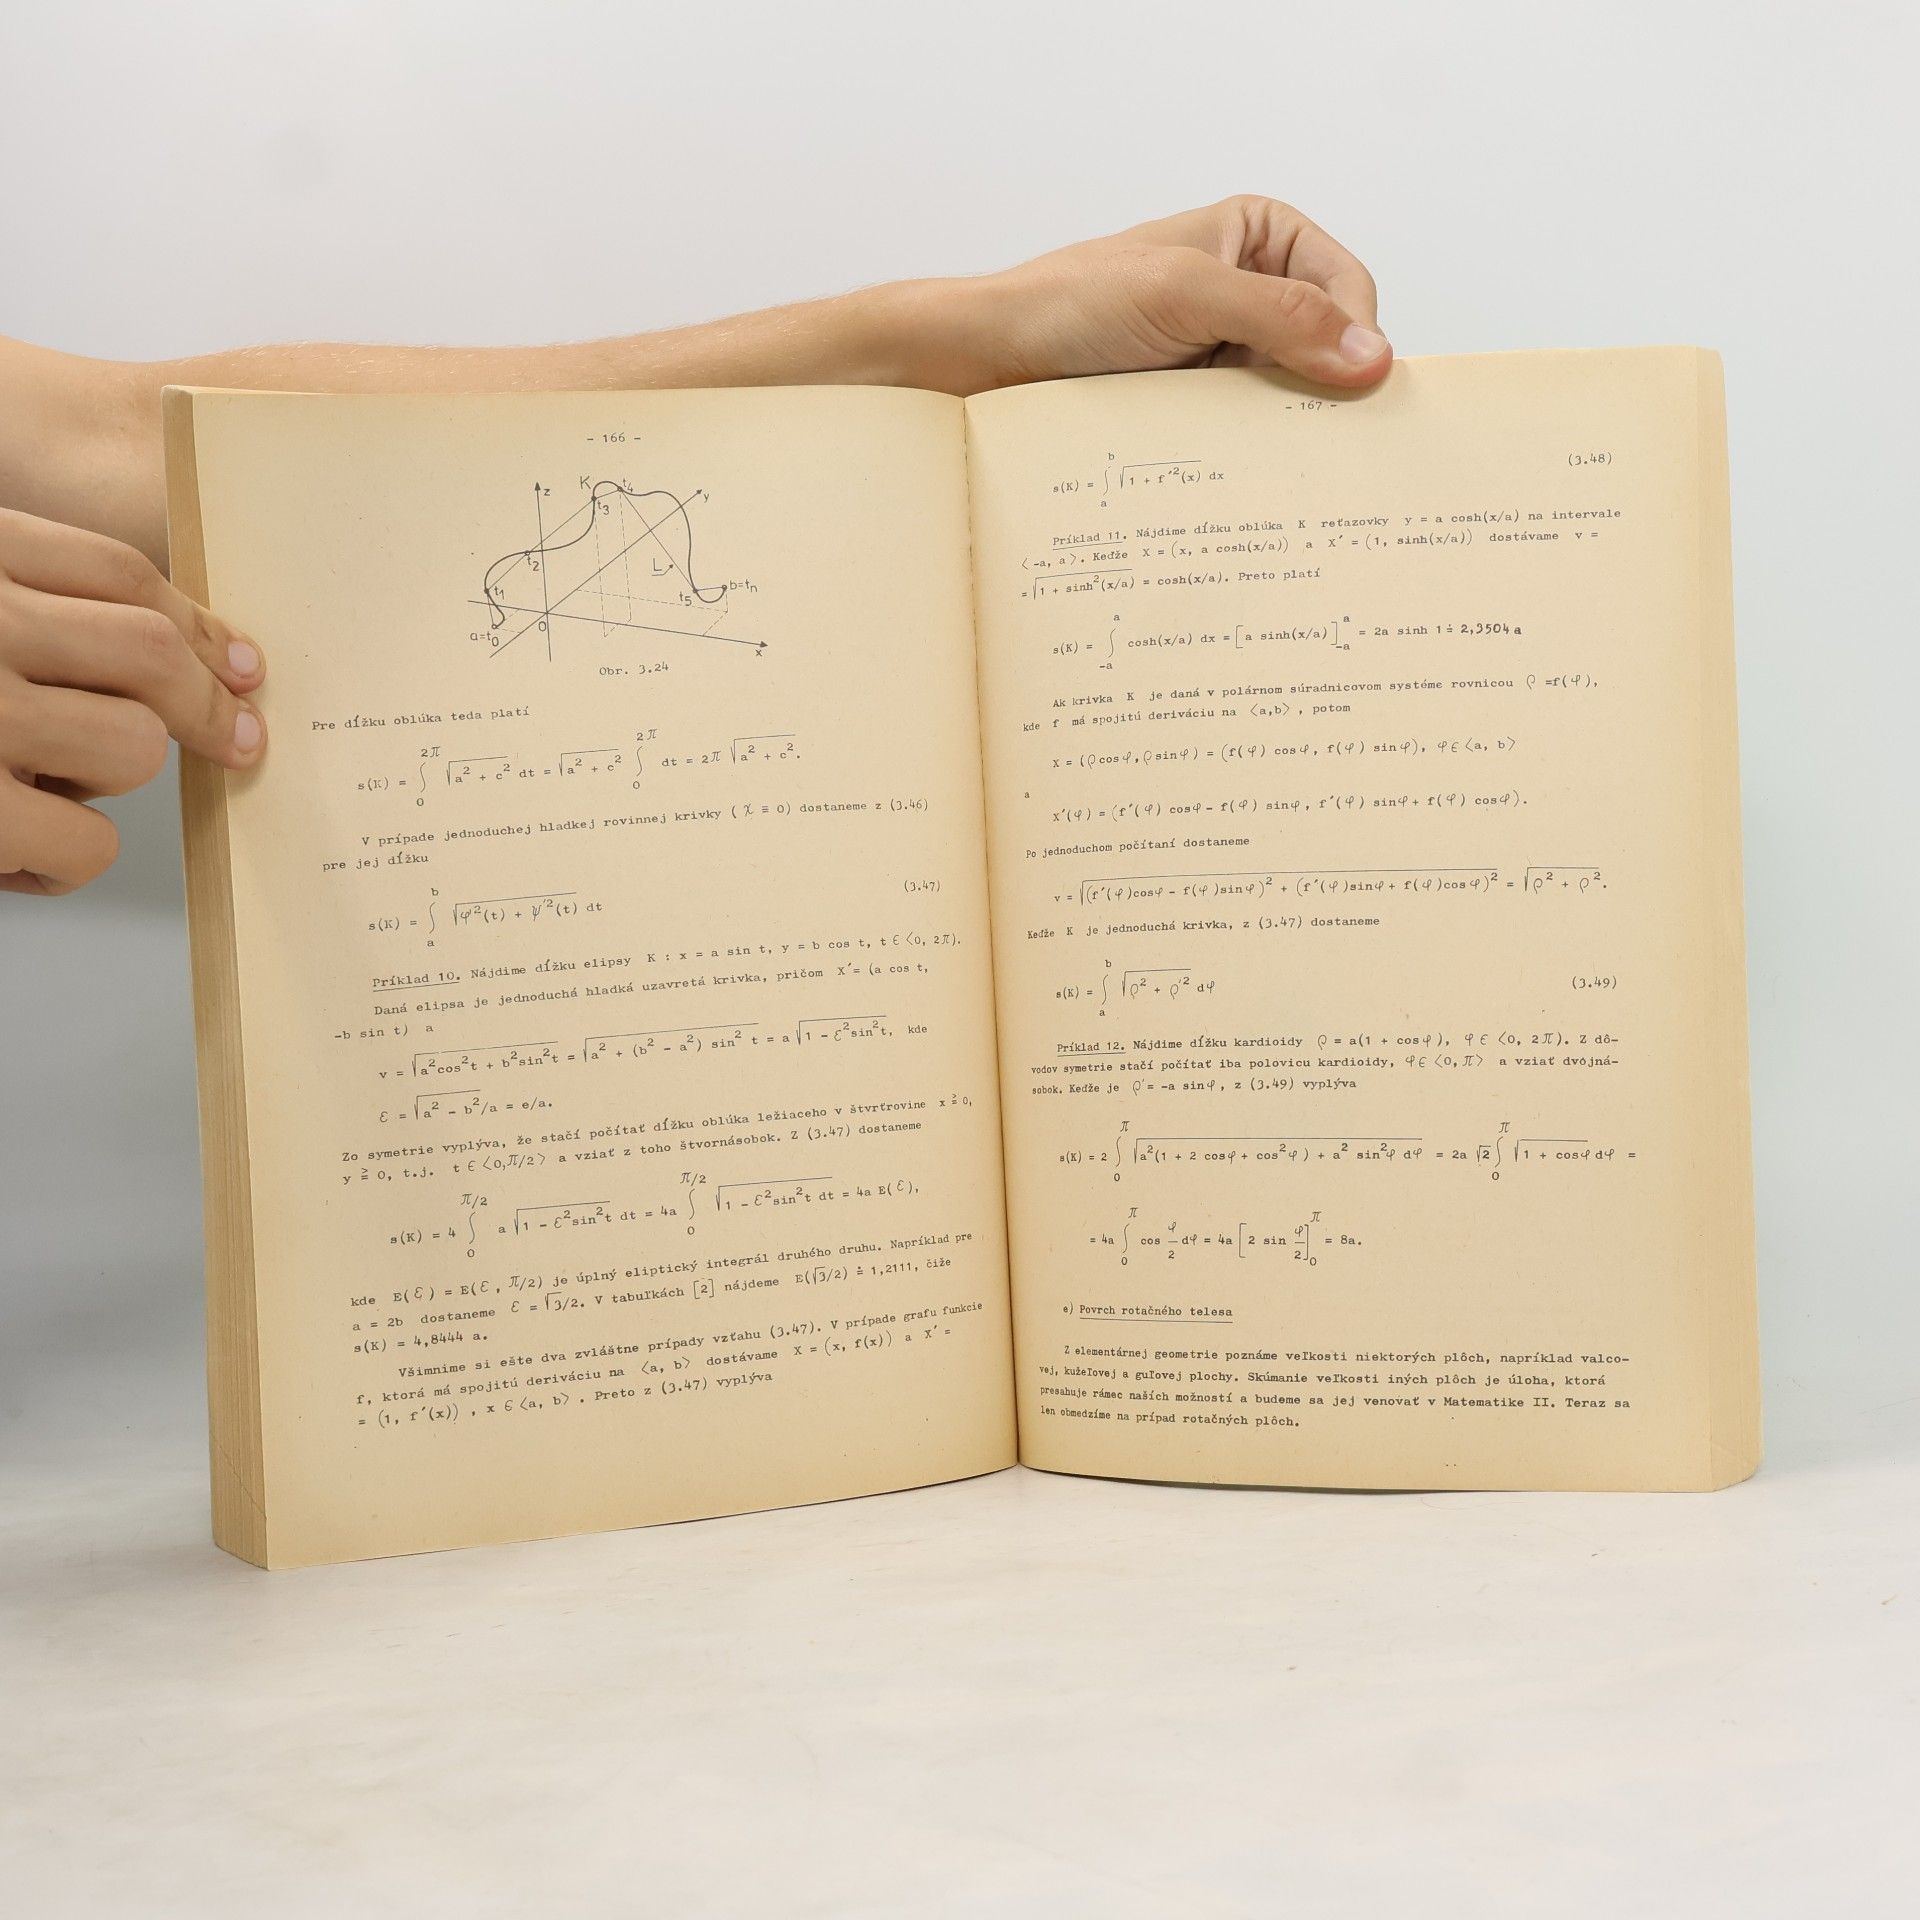 - 166 -
z
K
t4
y
t3
t2
L
t1
t5
b=tn
a=t0
0
x
Obr. 3.24
Pre dĺžku oblúka teda platí
s(K) = ∫₀^{2π} √(a² + c²) dt = √(a² + c²) ∫₀^{2π} dt = 2π √(a² + c²).
V prípade jednoduchej hladkej rovinnej krivky ( χ ≡ 0) dostaneme z (3.46)
pre jej dĺžku
s(K) = ∫ₐᵇ √(φ′²(t) + ψ′²(t)) dt (3.47)
Príklad 10. Nájdime dĺžku elipsy K : x = a sin t, y = b cos t, t ∈ ⟨0, 2π).
Daná elipsa je jednoduchá hladká uzavretá krivka, pričom X′= (a cos t,
-b sin t) a
v = √(a²cos²t + b²sin²t) = √(a² + (b² - a²) sin² t) = a √(1 - ε²sin²t), kde
ε = √(a² - b²)/a = e/a.
Zo symetrie vyplýva, že stačí počítať dĺžku oblúka ležiaceho v štvrťrovine x ≧ 0,
y ≧ 0, t.j. t ∈ ⟨0,π/2⟩ a vziať z toho štvornásobok. Z (3.47) dostaneme
s(K) = 4 ∫₀^{π/2} a √(1 - ε²sin²t) dt = 4a ∫₀^{π/2} √(1 - ε²sin²t) dt = 4a E(ε),
kde E(ε) = E(ε, π/2) je úplný eliptický integrál druhého druhu. Napríklad pre
a = 2b dostaneme ε = √3/2. V tabuľkách [2] nájdeme E(√3/2) ≐ 1,2111, čiže
s(K) = 4,8444 a.
Všimnime si ešte dva zvláštne prípady vzťahu (3.47). V prípade grafu funkcie
f, ktorá má spojitú deriváciu na ⟨a, b⟩ dostávame X = (x, f(x)) a X′ =
= (1, f′(x)) , x ∈ ⟨a, b⟩ . Preto z (3.47) vyplýva
- 167 -
s(K) = ∫ₐᵇ √(1 + f′²(x)) dx (3.48)
Príklad 11. Nájdime dĺžku oblúka K reťazovky y = a cosh(x/a) na intervale
⟨ -a, a ⟩. Keďže X = (x, a cosh(x/a)) a X′ = (1, sinh(x/a)) dostávame v =
= √(1 + sinh²(x/a)) = cosh(x/a). Preto platí
s(K) = ∫₋ₐᵃ cosh(x/a) dx = [a sinh(x/a)]₋ₐᵃ = 2a sinh 1 ≐ 2,3504 a
Ak krivka K je daná v polárnom súradnicovom systéme rovnicou ρ =f(φ),
kde f má spojitú deriváciu na ⟨a,b⟩ , potom
X = (ρ cosφ, ρ sinφ) = (f(φ) cosφ, f(φ) sinφ), φ ∈ ⟨a, b⟩
a
X′(φ) = (f′(φ) cosφ - f(φ) sinφ, f′(φ) sinφ + f(φ) cosφ).
Po jednoduchom počítaní dostaneme
v = √((f′(φ)cosφ - f(φ)sinφ)² + (f′(φ)sinφ + f(φ)cosφ)²) = √(ρ² + ρ²).
Keďže K je jednoduchá krivka, z (3.47) dostaneme
s(K) = ∫ₐᵇ √(ρ² + ρ′²) dφ (3.49)
Príklad 12. Nájdime dĺžku kardioidy ρ = a(1 + cosφ), φ ∈ ⟨0, 2π). Z dô-
vodov symetrie stačí počítať iba polovicu kardioidy, φ ∈ ⟨0,π⟩ a vziať dvojná-
sobok. Keďže je ρ′= -a sinφ, z (3.49) vyplýva
s(K) = 2 ∫₀^π √(a²(1 + 2 cosφ + cos²φ) + a² sin²φ) dφ = 2a √2 ∫₀^π √(1 + cosφ) dφ =
= 4a ∫₀^π cos φ/2 dφ = 4a [2 sin φ/2]₀^π = 8a.
e) Povrch rotačného telesa
Z elementárnej geometrie poznáme veľkosti niektorých plôch, napríklad valco-
vej, kužeľovej a guľovej plochy. Skúmanie veľkosti iných plôch je úloha, ktorá
presahuje rámec našich možností a budeme sa jej venovať v Matematike II. Teraz sa
len obmedzíme na prípad rotačných plôch.